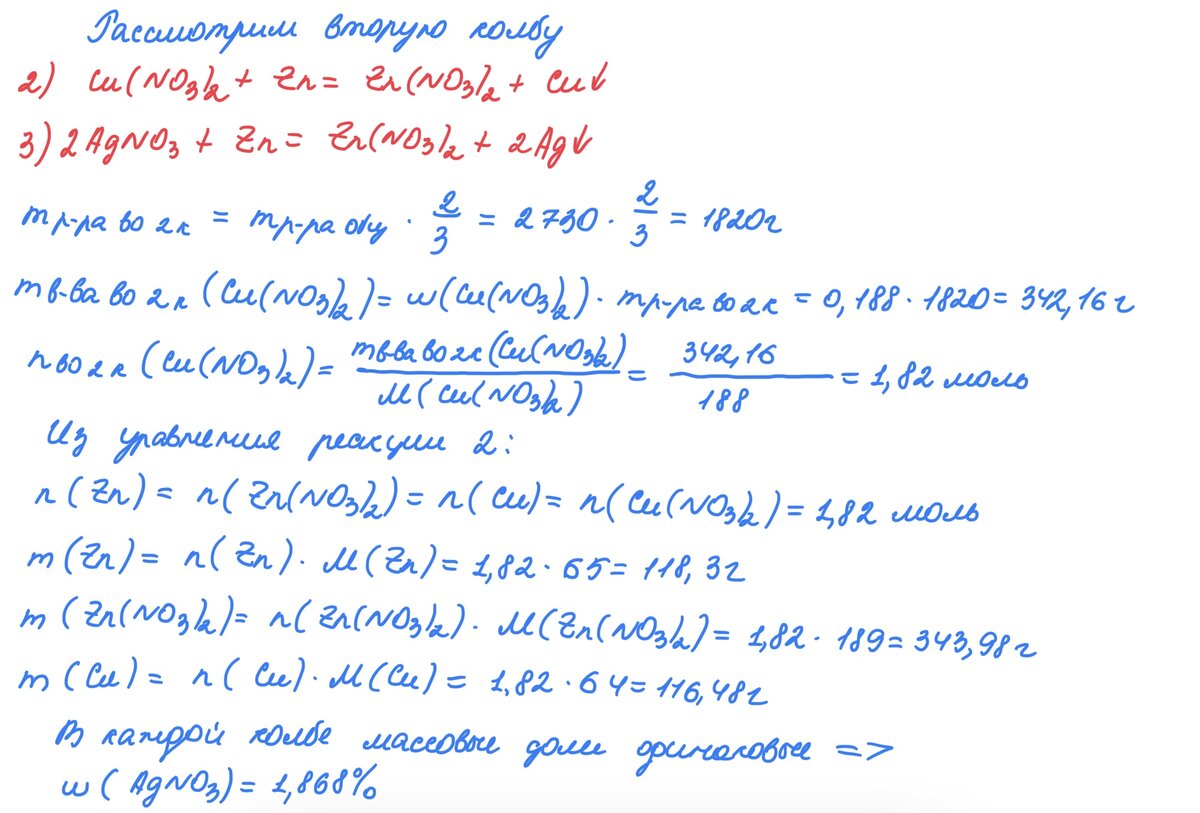 Рассмотрим вторую колбу
2) Cu(NO3)2 + Zn = Zn(NO3)2 + Cu↓
3) 2AgNO3 + Zn = Zn(NO3)2 + 2Ag↓
m р-ра во 2к = m р-ра общ · 2/3 = 2730 · 2/3 = 1820г
m в-ва во 2к (Cu(NO3)2) = w(Cu(NO3)2) · m р-ра во 2к = 0,188 · 1820 = 342,16 г
n во 2к (Cu(NO3)2) = m в-ва во 2к (Cu(NO3)2) / M(Cu(NO3)2) = 342,16 / 188 = 1,82 моль
Из уравнения реакции 2:
n(Zn) = n(Zn(NO3)2) = n(Cu) = n(Cu(NO3)2) = 1,82 моль
m(Zn) = n(Zn) · M(Zn) = 1,82 · 65 = 118,3г
m(Zn(NO3)2) = n(Zn(NO3)2) · M(Zn(NO3)2) = 1,82 · 189 = 343,98г
m(Cu) = n(Cu) · M(Cu) = 1,82 · 64 = 116,48г
В каждой колбе массовые доли одинаковые =>
w(AgNO3) = 1,868%